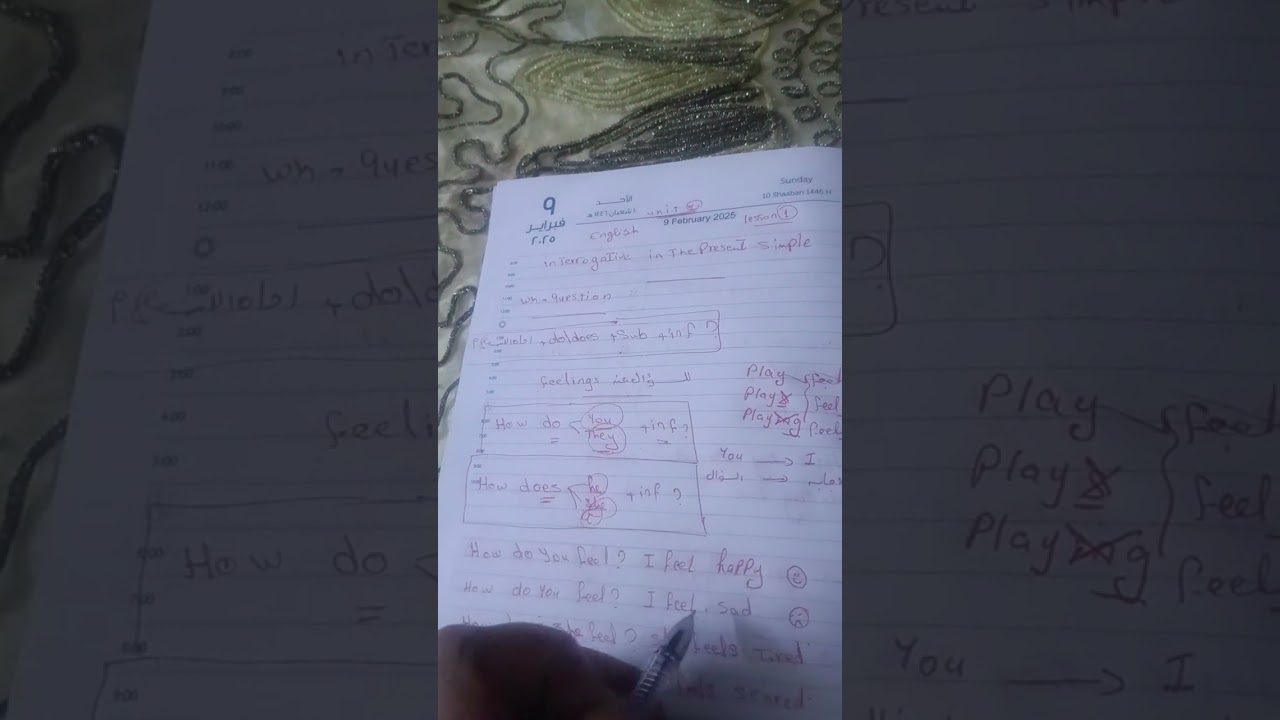 Sunday
10 Shaaban 1446 H
9 February 2025
٩
فبراير
٢٠٢٥
الأحد
unit
lesson 1
English
inTerrogaTive in The PresenT Simple
wh-question
+ do/does + Sub + inf ?
feelings السؤال عن
How do You They + inf ?
How does he she it + inf ?
Play
Play s
Play ing
feel
feel
You → I
السؤال
How do You feel? I feel happy
How do You feel? I feel sad
she feel? feels Tired
scared